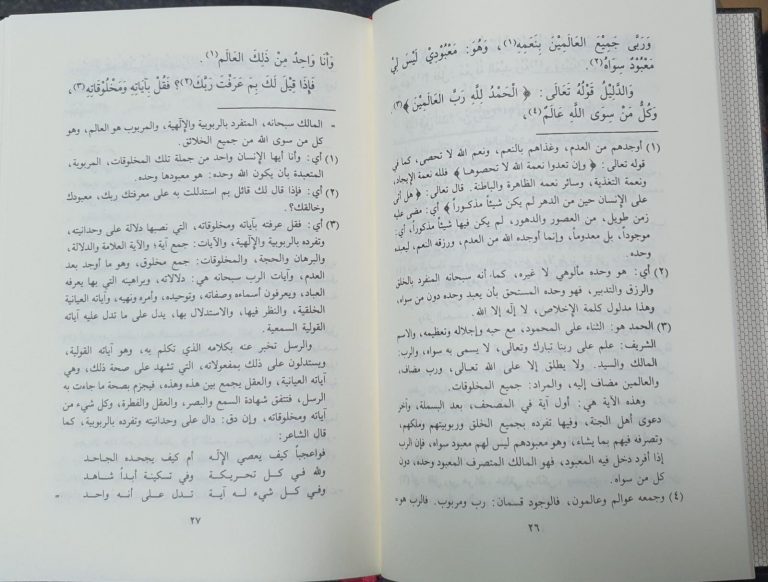 وَرَبَّى جَمِيْعَ العَالَمِيْنَ بِنَعَمِهِ(١)، وَهُوَ: مَعْبُودِيْ لَيْسَ لِيْ
مَعْبُوْدٌ سِوَاهُ(٢).
وَالدَّلِيْلُ قَوْلُهُ تَعَالَى: ﴿ الْحَمْدُ لِلَّهِ رَبِّ العَالَمِيْنَ ﴾(٣).
وَكُلُّ مَنْ سِوَى اللَّهِ عَالَمٌ(٤)،
(١) أوجدهم من العدم، وغذاهم بالنعم، ونعم الله لا تحصى، كما في
قوله تعالى: ﴿ وإن تعدوا نعمة الله لا تحصوهـا ﴾ فلله نعمة الإيجاد،
ونعمة التغذية، وسائر نعمه الظاهرة والباطنة. قال تعالى: ﴿ هل أتى
على الإنسان حين من الدهر لم يكن شيئاً مذكوراً ﴾ أي: مضى عليه
زمن طويل، من العصور والدهور، لم يكن فيها شيئاً مذكوراً، أي:
موجوداً، بل معدوماً، وإنما أوجده الله من العدم، ورزقه النعم، ليعبده
وحده.
(٢) أي: هو وحده مألوهي لا غيره، كما أنه سبحانه المنفرد بالخلق
والرزق والتدبير، فهو وحده المستحق بأن يعبد وحده دون من سواه،
وهذا مدلول كلمة الإخلاص، لا إله إلا الله.
(٣) الحمد هو: الثناء على المحمود، مع حبه وإجلاله وتعظيمه، والاسم
الشريف: علم على ربنا تبارك وتعالى، لا يسمى به سواه، والرب:
المالك والسيد. ولا يطلق إلا على الله تعالى، ورب مضاف،
والعالمين مضاف إليه، والمراد: جميع المخلوقات.
وهذه الآية هي: أول آية في المصحف، بعد البسملة، وآخر
دعوى أهل الجنة، وفيها تفرده بجميع الخلق وربوبيتهم وملكهم،
وتصرفه فيهم بما يشاء، وهو معبودهم ليس لهم معبود سواه، فإن الرب
إذا أفرد دخل فيه المعبود، فهو المالك المتصرف المعبود وحده، دون
كل من سواه.
(٤) وجمعه عوالم وعالمون، فالوجود قسمان: رب ومربوب. فالرب هو=
٢٦
وَأَنَا وَاحِدٌ مِنْ ذَلِكَ العَالَمِ(١).
فَإِذَا قِيْلَ لَكَ بِمَ عَرَفْتَ رَبَّكَ(٢)؟ فَقُلْ بِآيَاتِهِ وَمَخْلُوْقَاتِهِ(٣)،
= المالك سبحانه، المتفرد بالربوبية والإلهية، والمربوب هو العالم، وهو
كل من سوى الله من جميع الخلائق.
(١) أي: وأنا أيها الإنسان واحد من جملة تلك المخلوقات، المربوبة،
المتعبدة بأن يكون الله وحده: هو معبودها وحده.
(٢) أي: فإذا قال لك قائل بم استدللت به على معرفتك ربك، معبودك
وخالقك؟.
(٣) أي: فقل عرفته بآياته ومخلوقاته، التي نصبها دلالة على وحدانيته،
وتفرده بالربوبية والإلهية، والآيات: جمع آية؛ والآية العلامة والدلالة،
والبرهان والحجة، والمخلوقات: جمع مخلوق، وهو ما أوجد بعد
العدم، وآيات الرب سبحانه هي: دلالاته، وبراهينه التي بها يعرفه
العباد، ويعرفون أسماءه وصفاته، وتوحيده، وأمره ونهيه، وآياته العيانية
الخلقية، والنظر فيها، والاستدلال بها، يدل على ما تدل عليه آياته
القولية السمعية.
والرسل تخبر عنه بكلامه الذي تكلم به، وهو آياته القولية،
ويستدلون على ذلك بمفعولاته، التي تشهد على صحة ذلك، وهي
آياته العيانية، والعقل يجمع بين هذه وهذه، فيجزم بصحة ما جاءت به
الرسل، فتتفق شهادة السمع والبصر، والعقل والفطرة، وكل شيء من
آياته ومخلوقاته، وإن دق: دال على وحدانيته وتفرده بالربوبية، كما
قال الشاعر:
فواعجباً كيف يعصي الإله أم كيف يجحده الجاحد
ولله في كل تحريكة وفي تسكينة أبداً شاهد
وفي كل شيء له آية تدل على أنه واحد =
٢٧